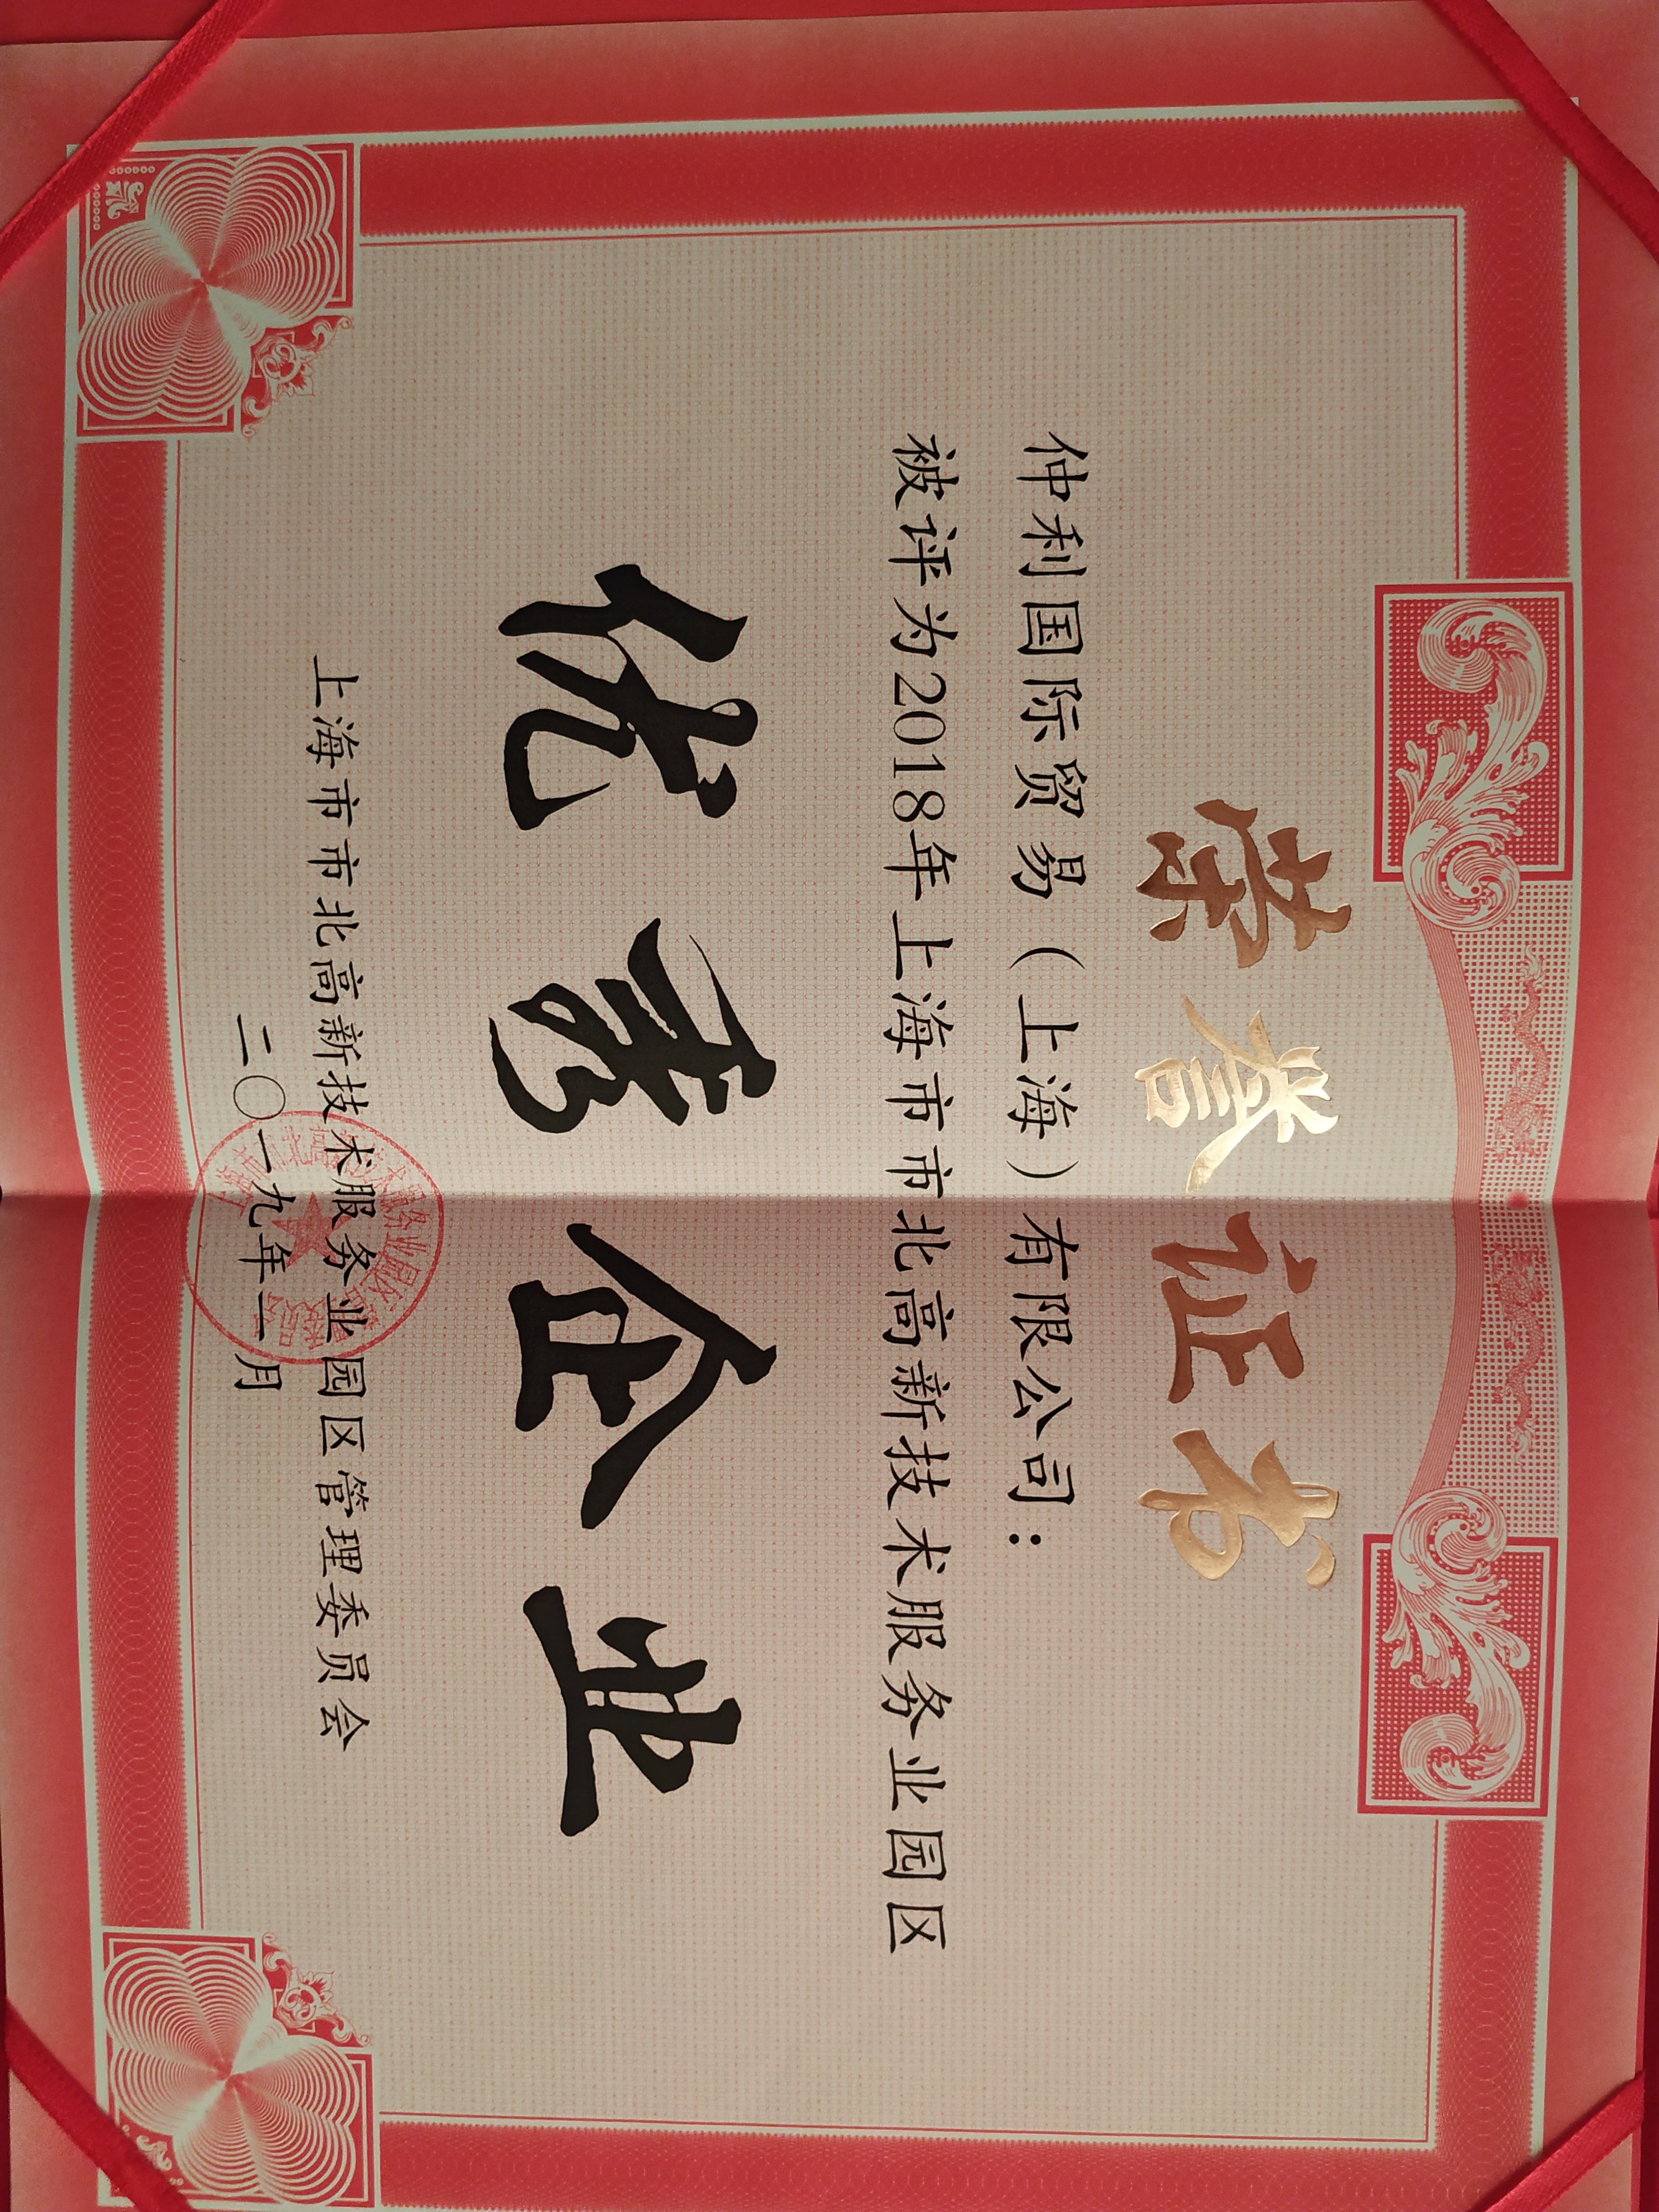 荣誉证书
仲利国际贸易（上海）有限公司：
被评为2018年上海市市北高新技术服务业园区
优秀企业
上海市市北高新技术服务业园区管理委员会
二〇一九年二月